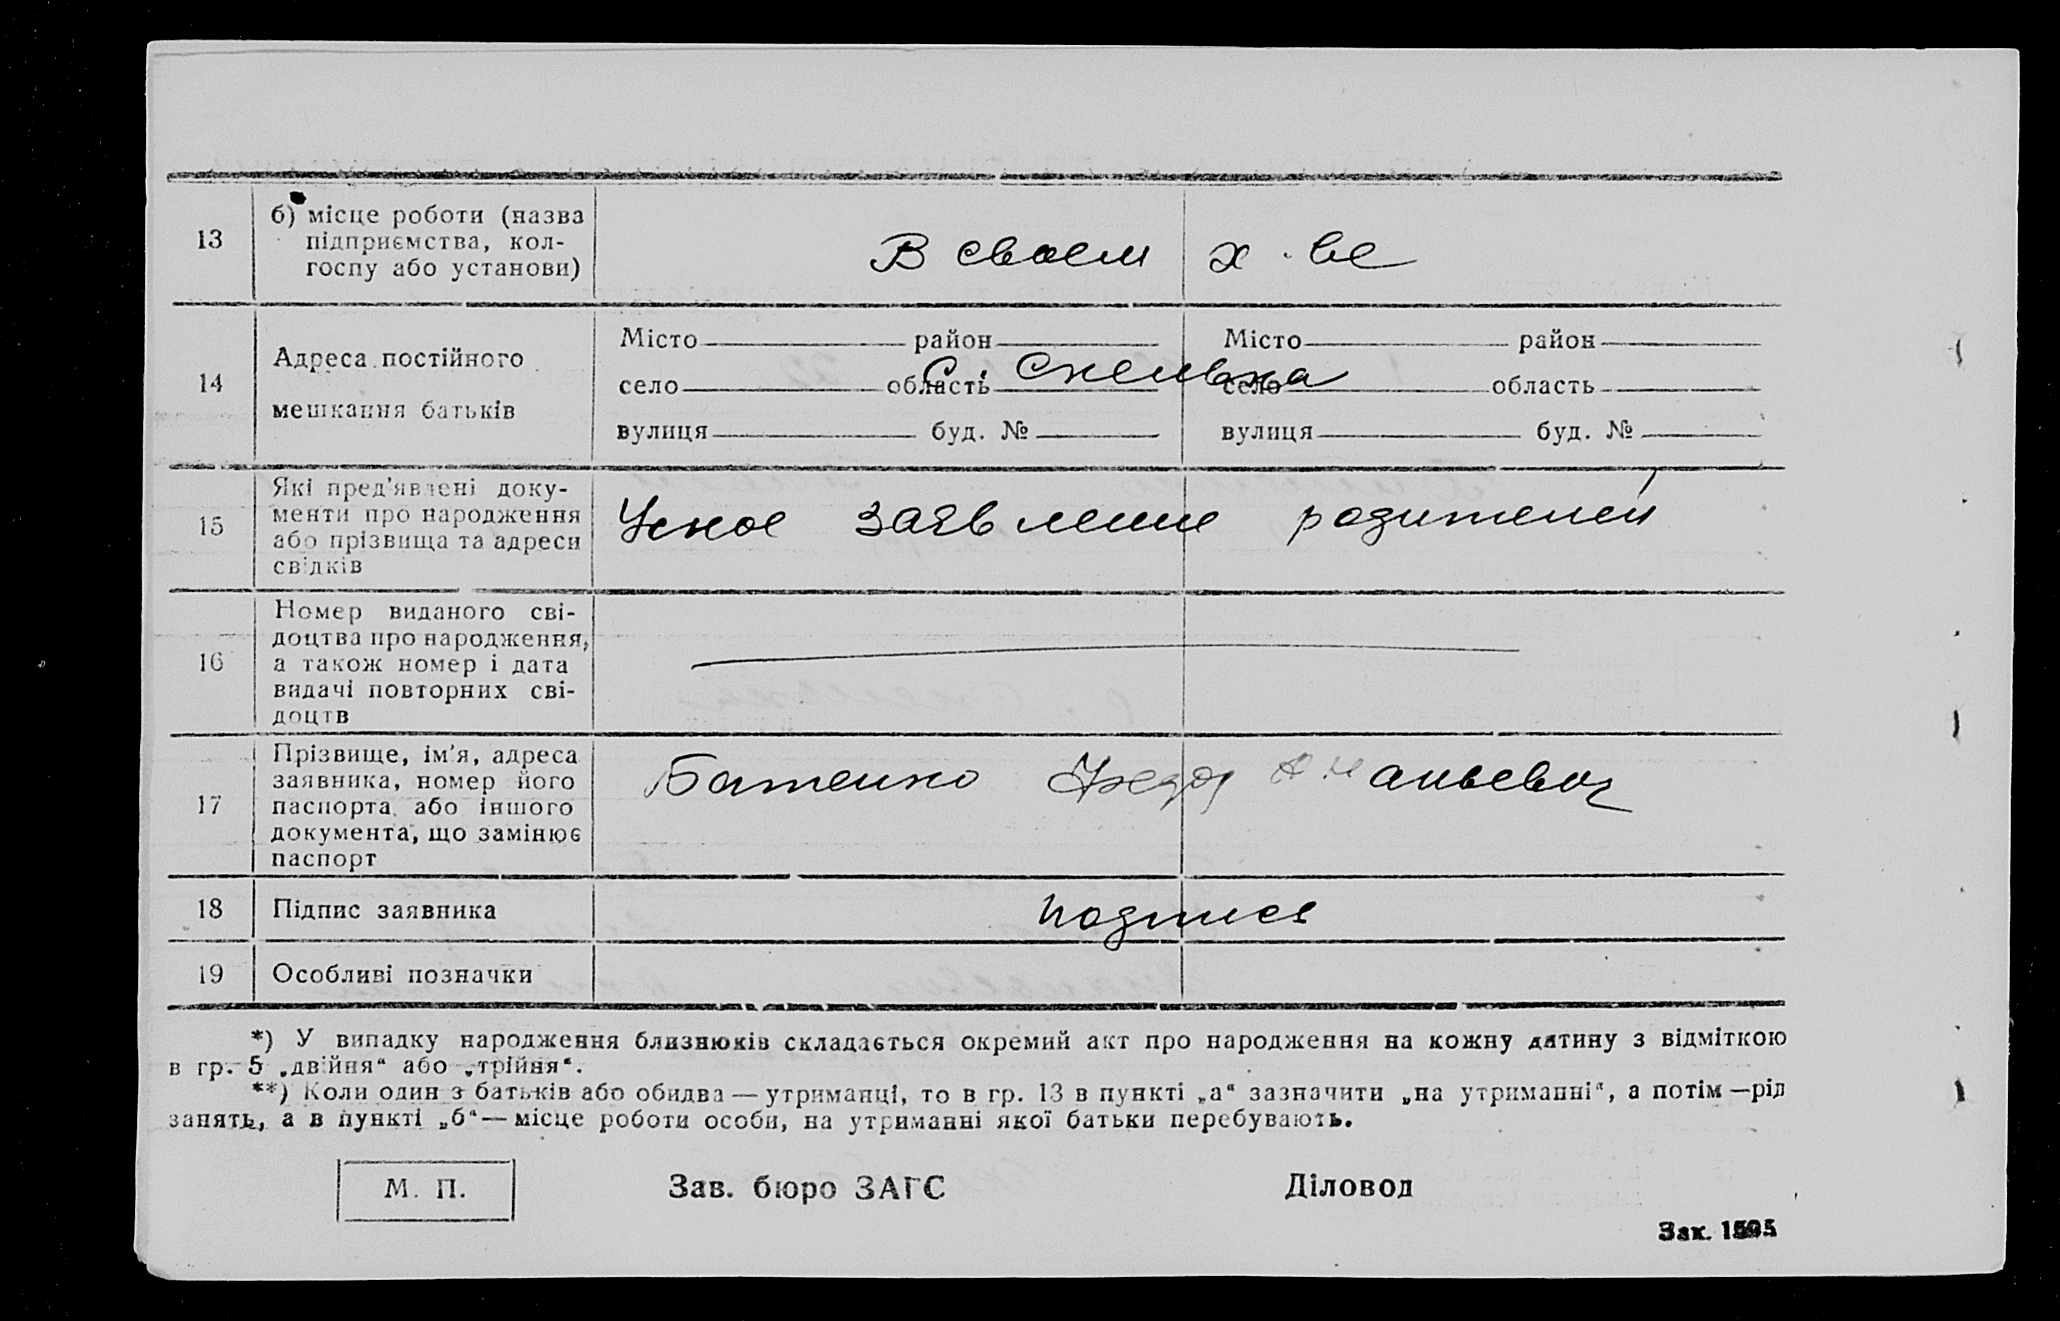 13
б) місце роботи (назва
підприємства, кол-
госпу або установи)
В своем х-ве
14
Адреса постійного
мешкання батьків
Місто район
село область
вулиця буд. №
Місто район
село область
вулиця буд. №
с. Скельна
15
Які пред'явлені доку-
менти про народження
або прізвища та адреси
свідків
Усное заявление родителей
16
Номер виданого сві-
доцтва про народження,
а також номер і дата
видачі повторних сві-
доцтв
17
Прізвище, ім'я, адреса
заявника, номер його
паспорта або іншого
документа, що замінює
паспорт
Батенко Федор
18
Підпис заявника
подпись
19
Особливі позначки
*) У випадку народження близнюків складається окремий акт про народження на кожну дитину з відміткою
в гр. 5 „двійня“ або „трійня“.
**) Коли один з батьків або обидва — утриманці, то в гр. 13 в пункті „а“ зазначити „на утриманні“, а потім — рід
занять, а в пункті „б“ — місце роботи особи, на утриманні якої батьки перебувають.
М. П.
Зав. бюро ЗАГС
Діловод
Зак.